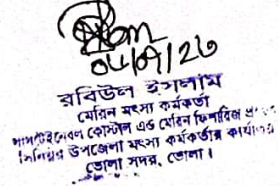 ০৮/০৭/২৩
রবিউল ইসলাম
মেরিন মৎস্য কর্মকর্তা
সাসটেইনেবল কোস্টাল এন্ড মেরিন ফিশারিজ
সিনিয়র উপজেলা মৎস্য কর্মকর্তার কার্যালয়
ভোলা সদর, ভোলা।